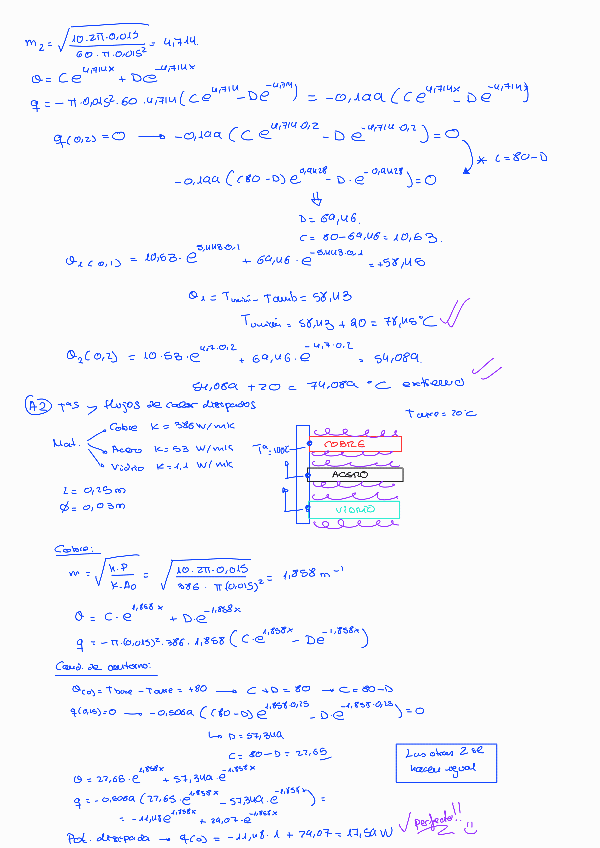 m₂ = √(10·2π·0,015 / 60·π·0,015²) = 4,714.
θ = Ce^4,714x + De^-4,714x
q = -π·0,015²·60·4,714 (Ce^4,714 - De^-4,714) = -0,199 (Ce^4,714x - De^-4,714x)
q(0,2) = 0 → -0,199 (Ce^4,714·0,2 - De^-4,714·0,2) = 0
* C = 80-D
-0,199 ((80-D) e^0,9428 - D·e^-0,9428) = 0
⇓
D = 69,46.
C = 80-69,46 = 10,53.
θ₁(0,1) = 10,53·e^3,443·0,1 + 69,46·e^-3,443·0,1 = +58,45
θ₁ = T - Tamb = 58,43
T = 58,43 + 20 = 78,45°C ✓✓
θ₂(0,2) = 10.53·e^4,7·0,2 + 69,46·e^-4,7·0,2 = 54,089.
54,089 + 20 = 74,089 °C extremo ✓✓
A2 Tªs y flujos de calor disipados
Taire = 20°C
Mat.
Cobre K = 386 W/mK
Acero K = 53 W/mK
Vidrio K = 1,1 W/mK
L = 0,25m
Φ = 0,03m
Tª=100°C
COBRE
ACERO
VIDRIO
Cobre:
m = √(h·P / K·A₀) = √(10·2π·0,015 / 386·π(0,015)²) = 1,858 m⁻¹
θ = C·e^1,858x + D·e^-1,858x
q = -π·(0,015)²·386·1,858 (C·e^1,858x - De^-1,858x)
Cond. de contorno:
θ(0) = Tbase - Taire = +80 → C+D = 80 → C = 80-D
q(0,25) = 0 → -0,5069 ((80-D) e^1,858·0,25 - D·e^-1,858·0,25) = 0
↳ D = 57,349
C = 80-D = 22,65
Las otras 2 se
hacen igual
θ = 22,65·e^1,858x + 57,349 e^-1,858x
q = -0,5069 (22,65·e^1,858x - 57,349·e^-1,858x) =
= -11,48 e^1,858x + 29,07·e^-1,858x
Pot. disipada → q(0) = -11,48·1 + 29,07 = 17,59 W ✓ perfecto!! :)